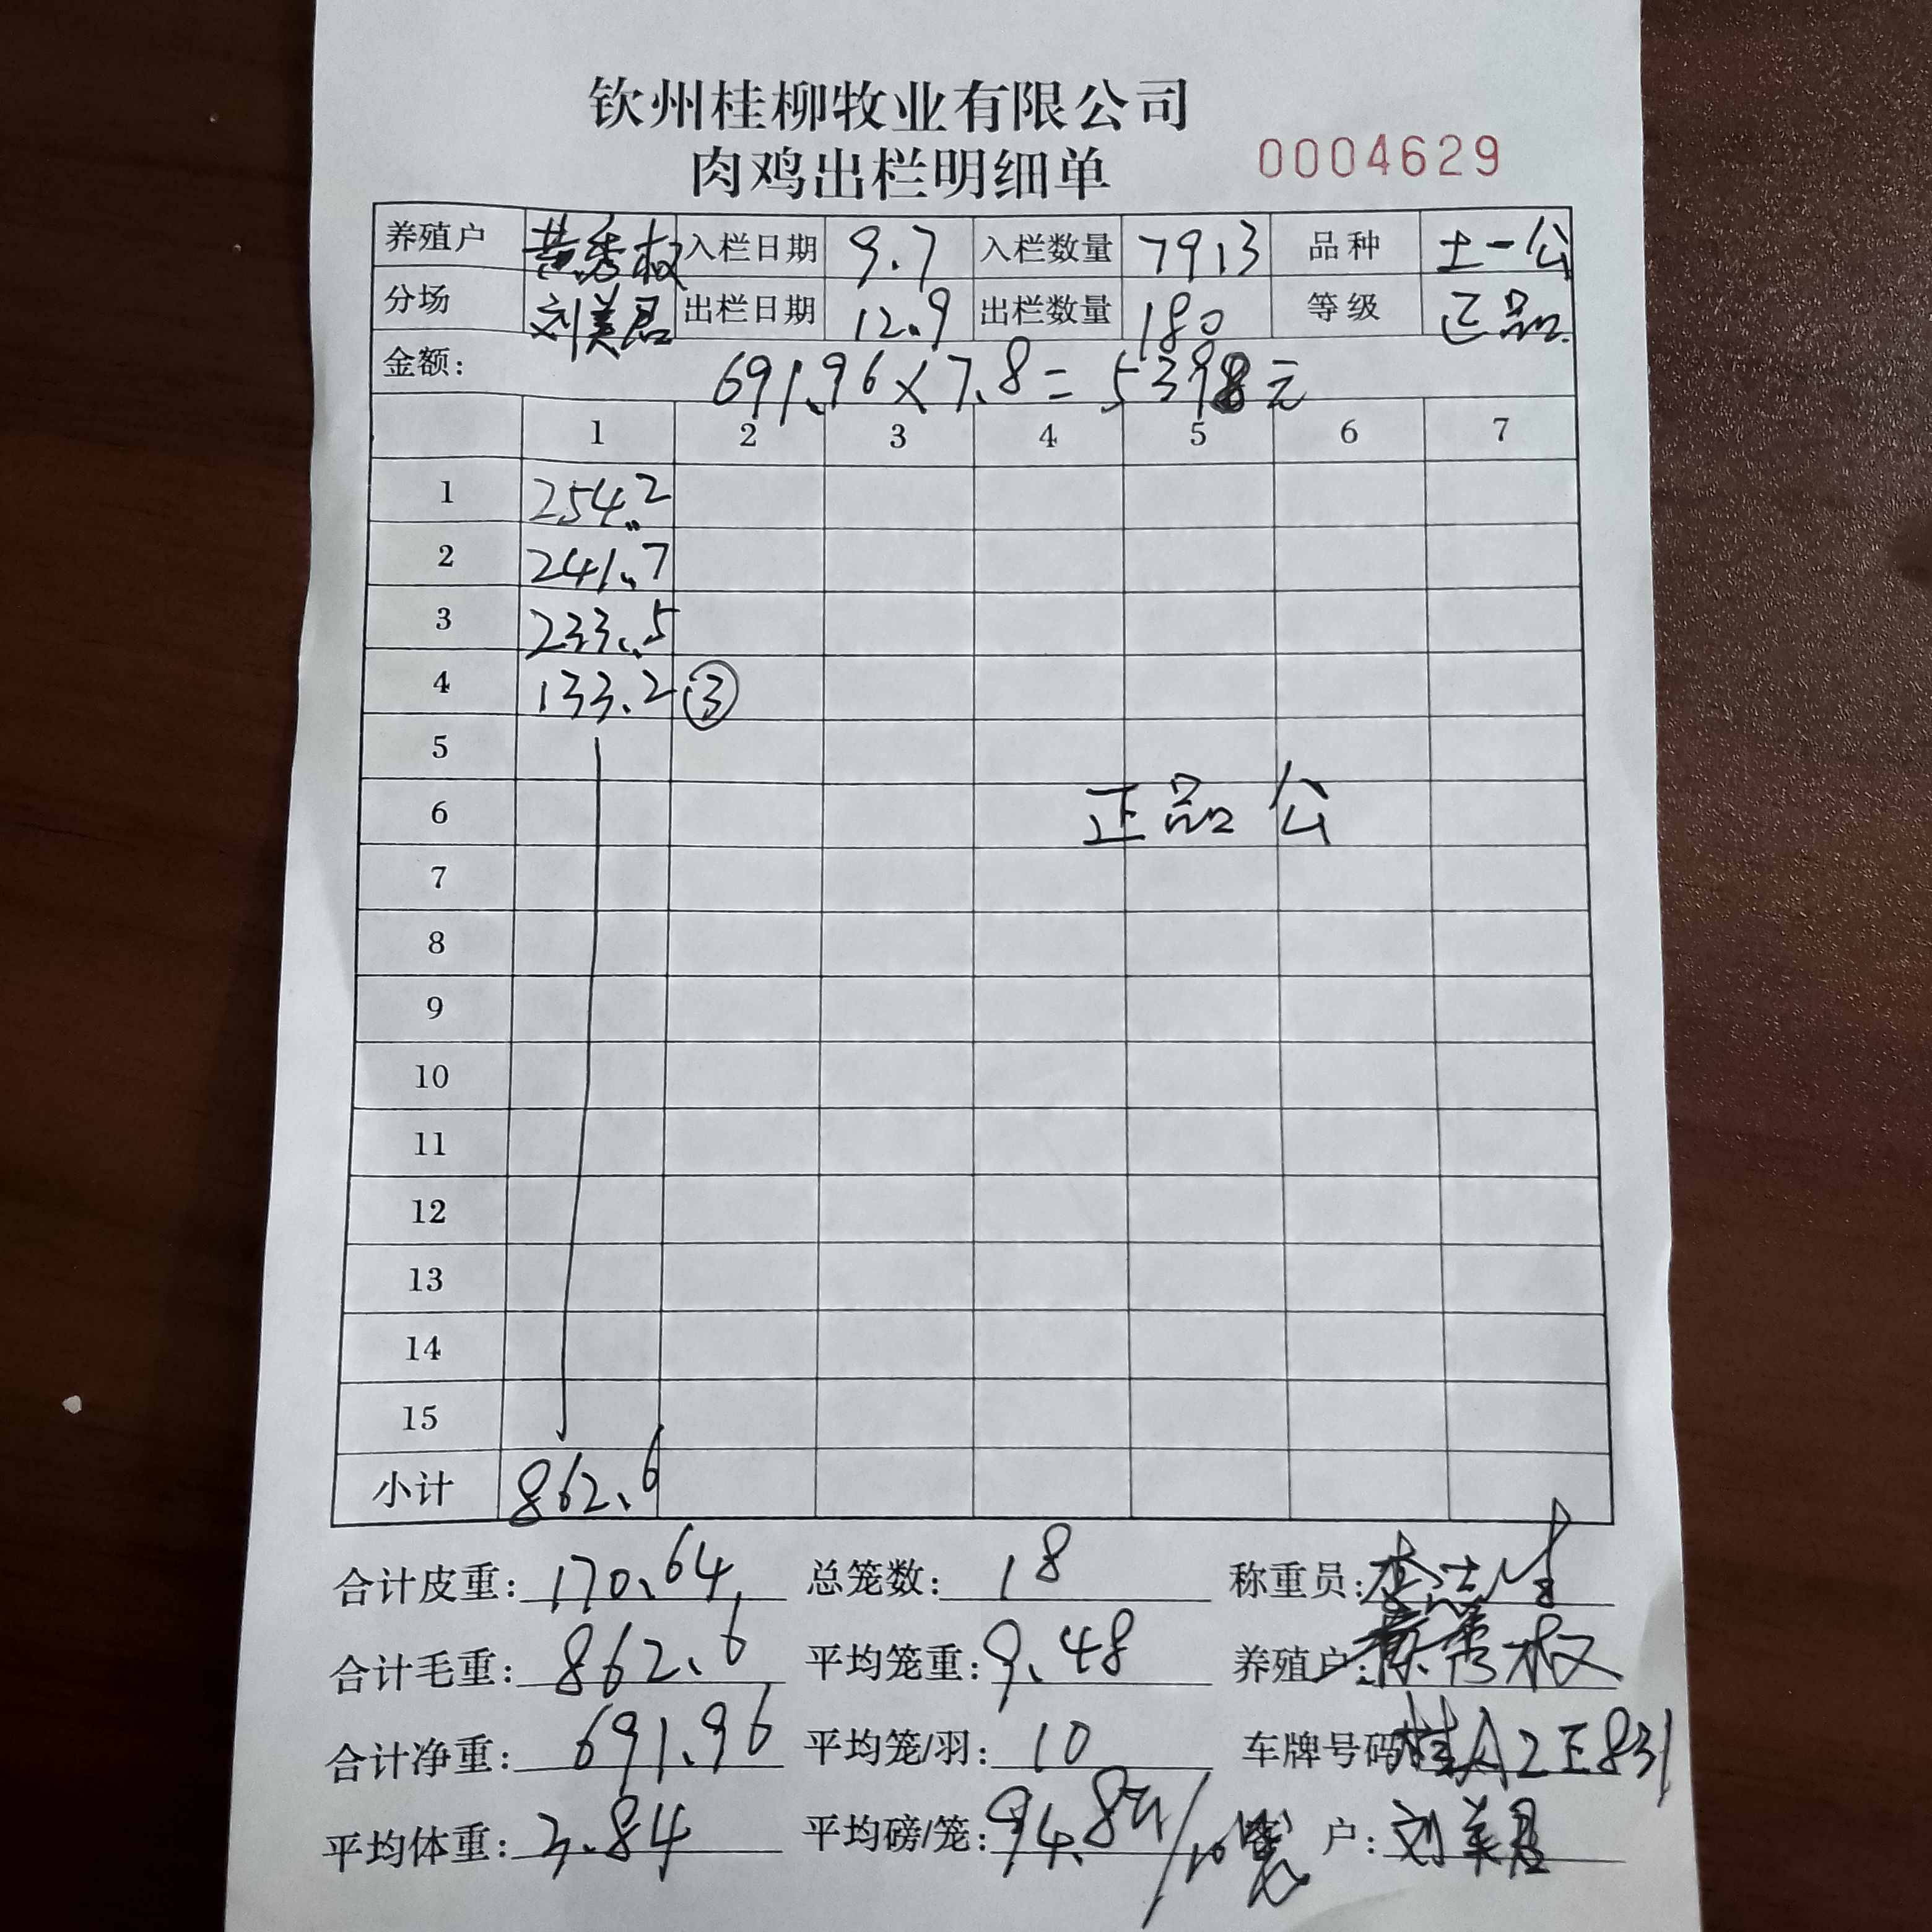 钦州桂柳牧业有限公司
肉鸡出栏明细单 0004629
养殖户 黄秀权 入栏日期 9.7 入栏数量 7913 品种 土一公
分场 刘美君 出栏日期 12.9 出栏数量 180 等级 正品
金额: 691.96×7.8=5398元
1 2 3 4 5 6 7
1 254.2
2 241.7
3 233.5
4 133.2 ③
5
6 正品公
7
8
9
10
11
12
13
14
15
小计 862.6
合计皮重: 170.64 总笼数: 18 称重员:
合计毛重: 862.6 平均笼重: 9.48 养殖户: 黄秀权
合计净重: 691.96 平均笼/羽: 10 车牌号码 桂A2正831
平均体重: 3.84 平均磅/笼: 94.8斤/10笼 户: 刘美君